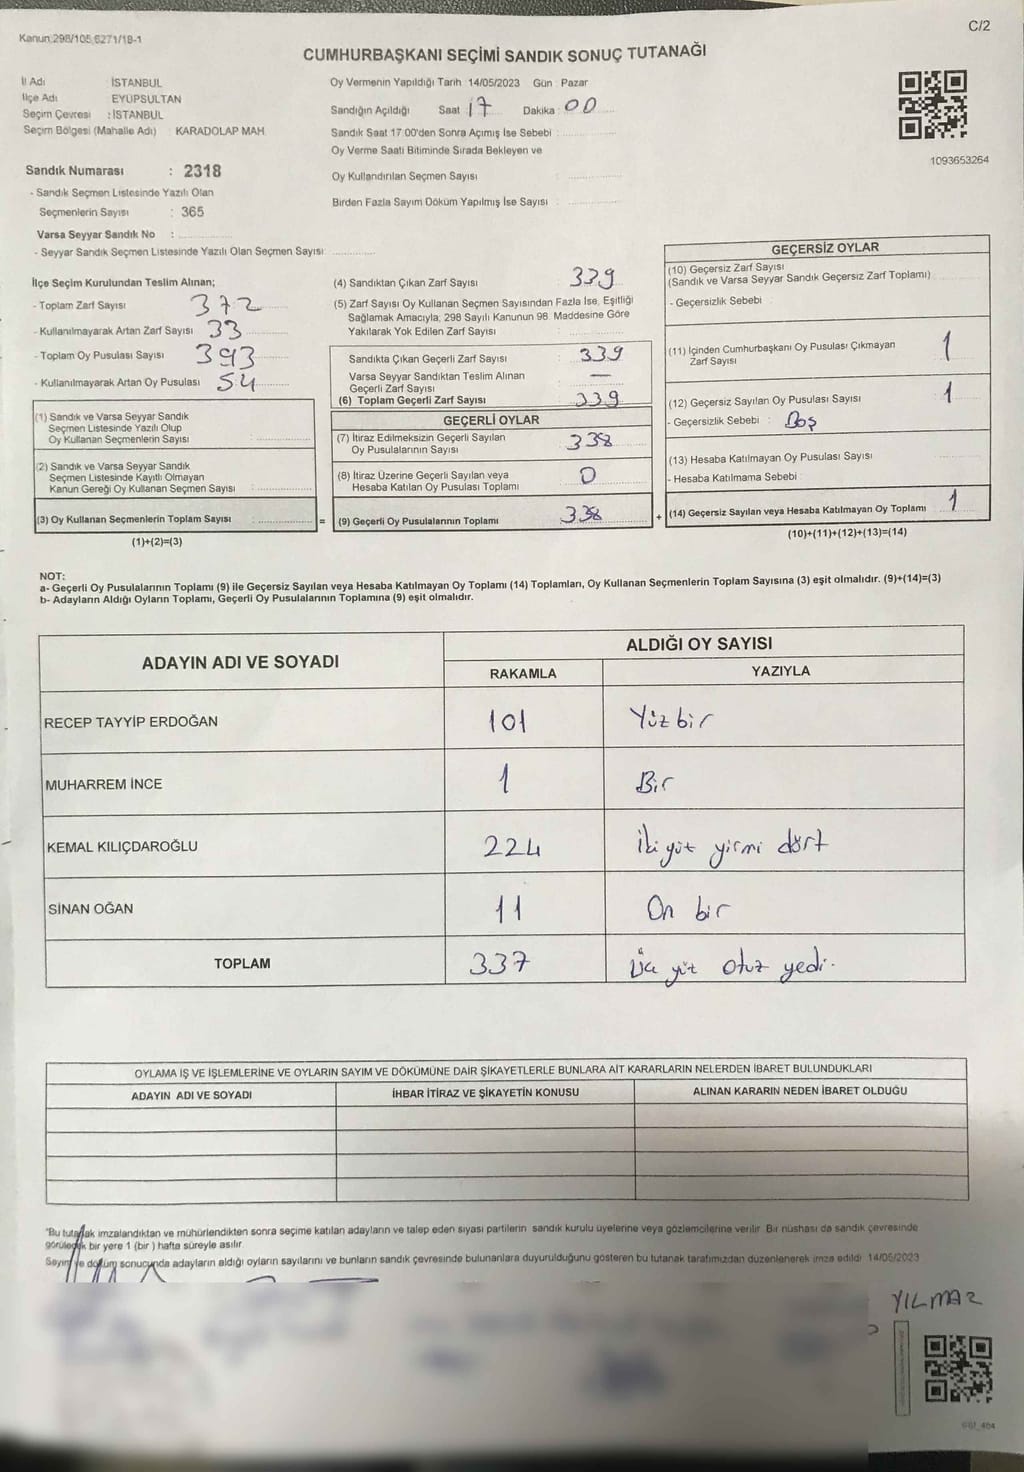 Kanun:298/105,6271/18-1
C/2
CUMHURBAŞKANI SEÇİMİ SANDIK SONUÇ TUTANAĞI
İl Adı : İSTANBUL
İlçe Adı : EYÜPSULTAN
Seçim Çevresi : İSTANBUL
Seçim Bölgesi (Mahalle Adı) : KARADOLAP MAH.
Sandık Numarası : 2318
- Sandık Seçmen Listesinde Yazılı Olan
Seçmenlerin Sayısı : 365
Varsa Seyyar Sandık No :
- Seyyar Sandık Seçmen Listesinde Yazılı Olan Seçmen Sayısı :
Oy Vermenin Yapıldığı Tarih : 14/05/2023 Gün : Pazar
Sandığın Açıldığı Saat : 17 Dakika : 00
Sandık Saat 17:00'den Sonra Açılmış İse Sebebi :
Oy Verme Saati Bitiminde Sırada Bekleyen ve
Oy Kullandırılan Seçmen Sayısı :
Birden Fazla Sayım Döküm Yapılmış İse Sayısı :
1093653264
İlçe Seçim Kurulundan Teslim Alınan;
- Toplam Zarf Sayısı : 372
- Kullanılmayarak Artan Zarf Sayısı : 33
- Toplam Oy Pusulası Sayısı : 393
- Kullanılmayarak Artan Oy Pusulası : 54
(1) Sandık ve Varsa Seyyar Sandık
Seçmen Listesinde Yazılı Olup
Oy Kullanan Seçmenlerin Sayısı :
(2) Sandık ve Varsa Seyyar Sandık
Seçmen Listesinde Kayıtlı Olmayan
Kanun Gereği Oy Kullanan Seçmen Sayısı :
(3) Oy Kullanan Seçmenlerin Toplam Sayısı : =
(1)+(2)=(3)
(4) Sandıktan Çıkan Zarf Sayısı : 339
(5) Zarf Sayısı Oy Kullanan Seçmen Sayısından Fazla İse, Eşitliği
Sağlamak Amacıyla, 298 Sayılı Kanunun 98. Maddesine Göre
Yakılarak Yok Edilen Zarf Sayısı :
Sandıkta Çıkan Geçerli Zarf Sayısı : 339
Varsa Seyyar Sandıktan Teslim Alınan
Geçerli Zarf Sayısı : —
(6) Toplam Geçerli Zarf Sayısı : 339
GEÇERLİ OYLAR
(7) İtiraz Edilmeksizin Geçerli Sayılan
Oy Pusulalarının Sayısı : 338
(8) İtiraz Üzerine Geçerli Sayılan veya
Hesaba Katılan Oy Pusulası Toplamı : 0
(9) Geçerli Oy Pusulalarının Toplamı : 338 +
GEÇERSİZ OYLAR
(10) Geçersiz Zarf Sayısı
(Sandık ve Varsa Seyyar Sandık Geçersiz Zarf Toplamı) :
- Geçersizlik Sebebi :
(11) İçinden Cumhurbaşkanı Oy Pusulası Çıkmayan
Zarf Sayısı : 1
(12) Geçersiz Sayılan Oy Pusulası Sayısı : 1
- Geçersizlik Sebebi : Boş
(13) Hesaba Katılmayan Oy Pusulası Sayısı :
- Hesaba Katılmama Sebebi :
(14) Geçersiz Sayılan veya Hesaba Katılmayan Oy Toplamı : 1
(10)+(11)+(12)+(13)=(14)
NOT:
a- Geçerli Oy Pusulalarının Toplamı (9) ile Geçersiz Sayılan veya Hesaba Katılmayan Oy Toplamı (14) Toplamları, Oy Kullanan Seçmenlerin Toplam Sayısına (3) eşit olmalıdır. (9)+(14)=(3)
b- Adayların Aldığı Oyların Toplamı, Geçerli Oy Pusulalarının Toplamına (9) eşit olmalıdır.
ADAYIN ADI VE SOYADI ALDIĞI OY SAYISI
RAKAMLA YAZIYLA
RECEP TAYYİP ERDOĞAN 101 Yüz bir
MUHARREM İNCE 1 Bir
KEMAL KILIÇDAROĞLU 224 İki yüz yirmi dört
SİNAN OĞAN 11 On bir
TOPLAM 337 Üç yüz otuz yedi.
OYLAMA İŞ VE İŞLEMLERİNE VE OYLARIN SAYIM VE DÖKÜMÜNE DAİR ŞİKAYETLERLE BUNLARA AİT KARARLARIN NELERDEN İBARET BULUNDUKLARI
ADAYIN ADI VE SOYADI İHBAR İTİRAZ VE ŞİKAYETİN KONUSU ALINAN KARARIN NEDEN İBARET OLDUĞU
*Bu tutanak imzalandıktan ve mühürlendikten sonra seçime katılan adayların ve talep eden siyasi partilerin sandık kurulu üyelerine veya gözlemcilerine verilir. Bir nüshası da sandık çevresinde
görülecek bir yere 1 (bir) hafta süreyle asılır.
Sayım ve döküm sonucunda adayların aldığı oyların sayılarını ve bunların sandık çevresinde bulunanlara duyurulduğunu gösteren bu tutanak tarafımızdan düzenlenerek imza edildi. 14/05/2023
YILMAZ